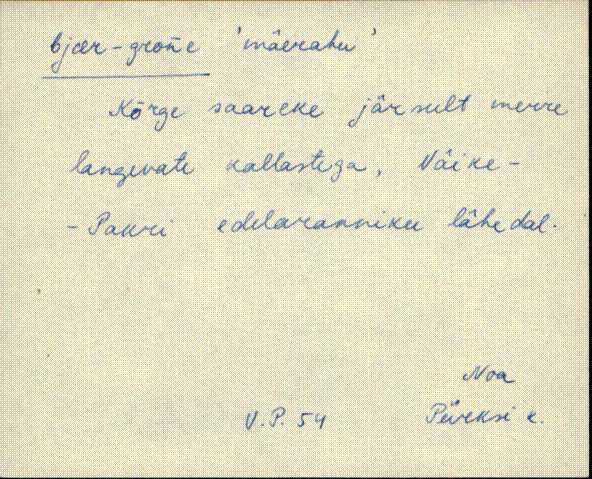 bjær-groñe 'mäerahu'
Kõrge saareke järsult merre
langevate kallastega, Väike-
-Pakri edelaranniku lähedal.
Noa
V.P. 54 Püreksi k.